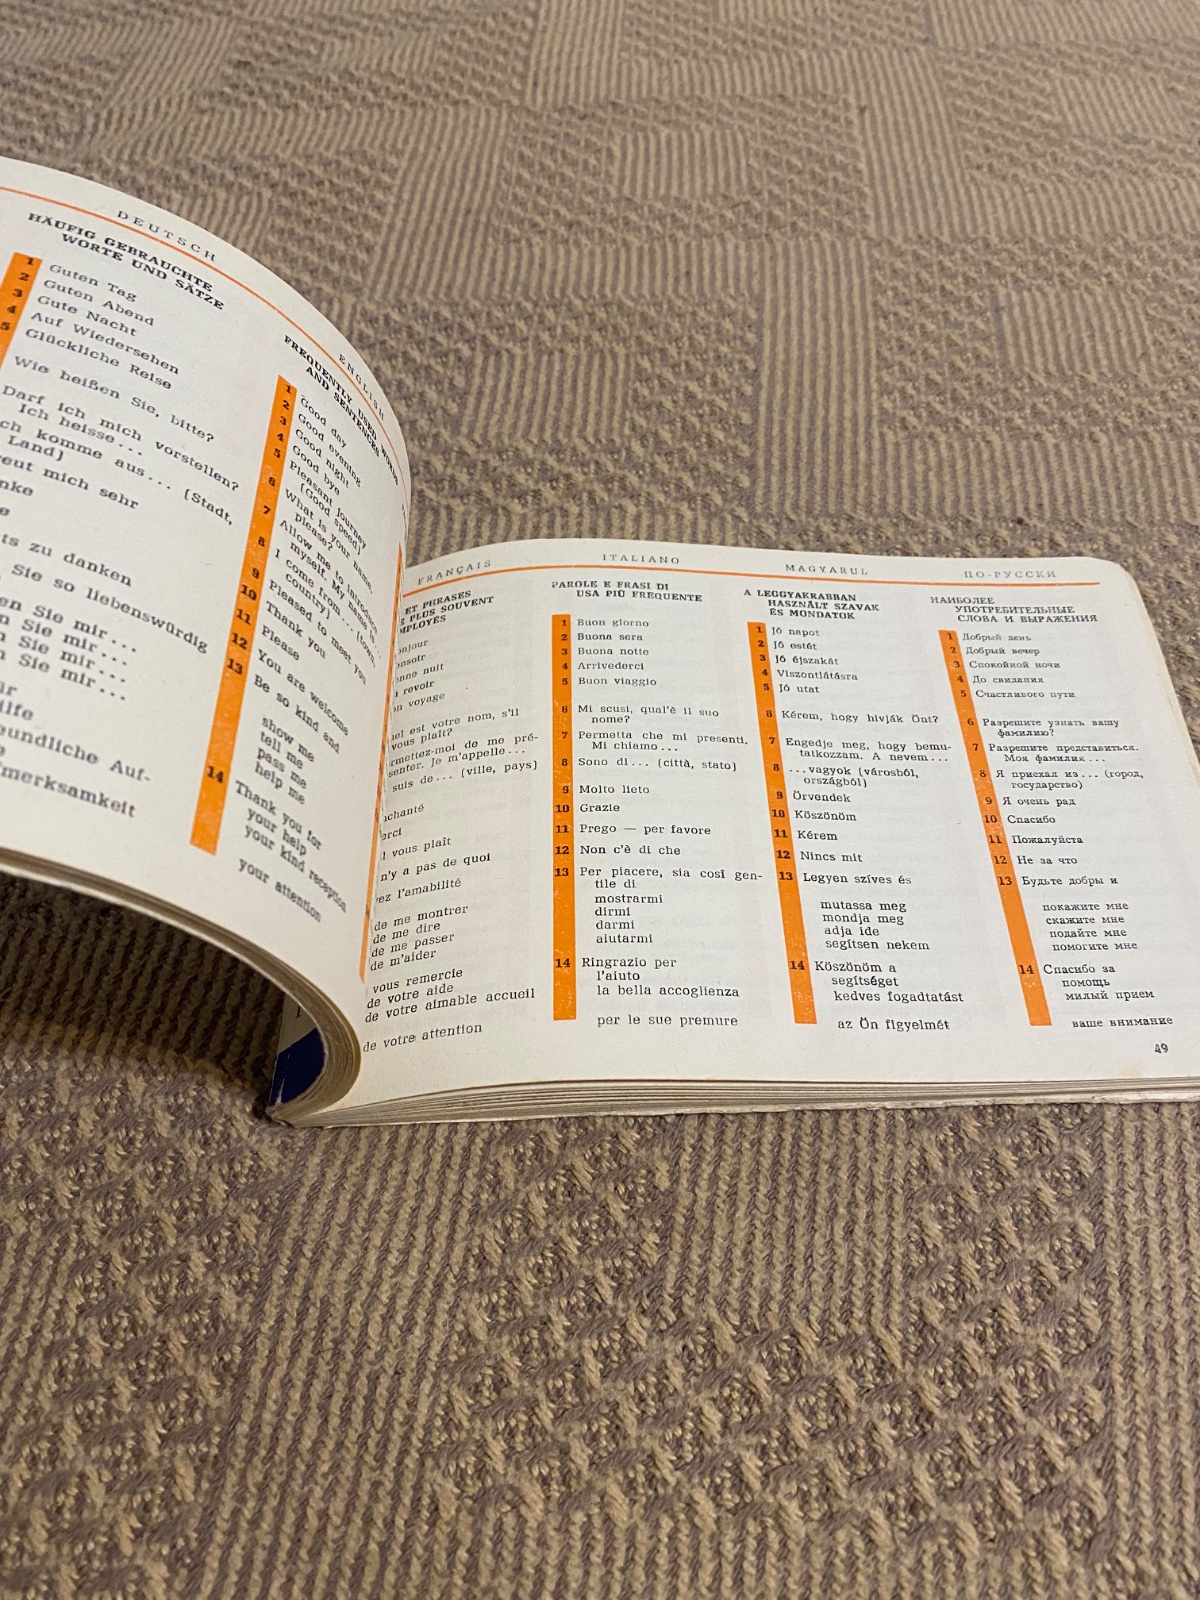 DEUTSCH
HÄUFIG GEBRAUCHTE
WORTE UND SÄTZE
1 Guten Tag
2 Guten Abend
3 Gute Nacht
4 Auf Wiedersehen
5 Glückliche Reise
Wie heißen Sie, bitte?
Darf ich mich vorstellen?
Ich heisse...
ch komme aus... (Stadt,
Land)
reut mich sehr
nke
e
ts zu danken
Sie so liebenswürdig
en Sie mir...
n Sie mir...
n Sie mir...
n Sie mir...
ür
ilfe
eundliche Auf-
e
fmerksamkeit
ENGLISH
FREQUENTLY USED WORDS
AND SENTENCES
1 Good day
2 Good evening
3 Good night
4 Good bye
5 Pleasant journey
(Good speed)
6 What is your name,
please?
7 Allow me to introduce
myself. My name is...
8 I come from... (town,
country)
9 Pleased to meet you
10 Thank you
11 Please
12 You are welcome
13 Be so kind and
show me
tell me
pass me
help me
14 Thank you for
your help
your kind reception
your attention
FRANÇAIS
ET PHRASES
E PLUS SOUVENT
MPLOYÉS
onjour
onsoir
onne nuit
u revoir
on voyage
uel est votre nom, s'il
vous plaît?
rmettez-moi de me pré-
senter. Je m'appelle...
suis de... (ville, pays)
nchanté
erci
l vous plaît
n'y a pas de quoi
yez l'amabilité
de me montrer
de me dire
de me passer
de m'aider
vous remercie
de votre aide
de votre aimable accueil
de votre attention
ITALIANO
PAROLE E FRASI DI
USA PIÙ FREQUENTE
1 Buon giorno
2 Buona sera
3 Buona notte
4 Arrivederci
5 Buon viaggio
6 Mi scusi, qual'è il suo
nome?
7 Permetta che mi presenti.
Mi chiamo...
8 Sono di... (città, stato)
9 Molto lieto
10 Grazie
11 Prego — per favore
12 Non c'è di che
13 Per piacere, sia così gen-
tile di
mostrarmi
dirmi
darmi
aiutarmi
14 Ringrazio per
l'aiuto
la bella accoglienza
per le sue premure
MAGYARUL
A LEGGYAKRABBAN
HASZNÁLT SZAVAK
ÉS MONDATOK
1 Jó napot
2 Jó estét
3 Jó éjszakát
4 Viszontlátásra
5 Jó utat
6 Kérem, hogy hívják Önt?
7 Engedje meg, hogy bemu-
tatkozzam. A nevem...
8 ...vagyok (városból,
országból)
9 Örvendek
10 Köszönöm
11 Kérem
12 Nincs mit
13 Legyen szíves és
mutassa meg
mondja meg
adja ide
segítsen nekem
14 Köszönöm a
segítséget
kedves fogadtatást
az Ön figyelmét
ПО-РУССКИ
НАИБОЛЕЕ
УПОТРЕБИТЕЛЬНЫЕ
СЛОВА И ВЫРАЖЕНИЯ
1 Добрый день
2 Добрый вечер
3 Спокойной ночи
4 До свидания
5 Счастливого пути
6 Разрешите узнать вашу
фамилию?
7 Разрешите представиться.
Моя фамилия...
8 Я приехал из... (город,
государство)
9 Я очень рад
10 Спасибо
11 Пожалуйста
12 Не за что
13 Будьте добры и
покажите мне
скажите мне
подайте мне
помогите мне
14 Спасибо за
помощь
милый прием
ваше внимание
49